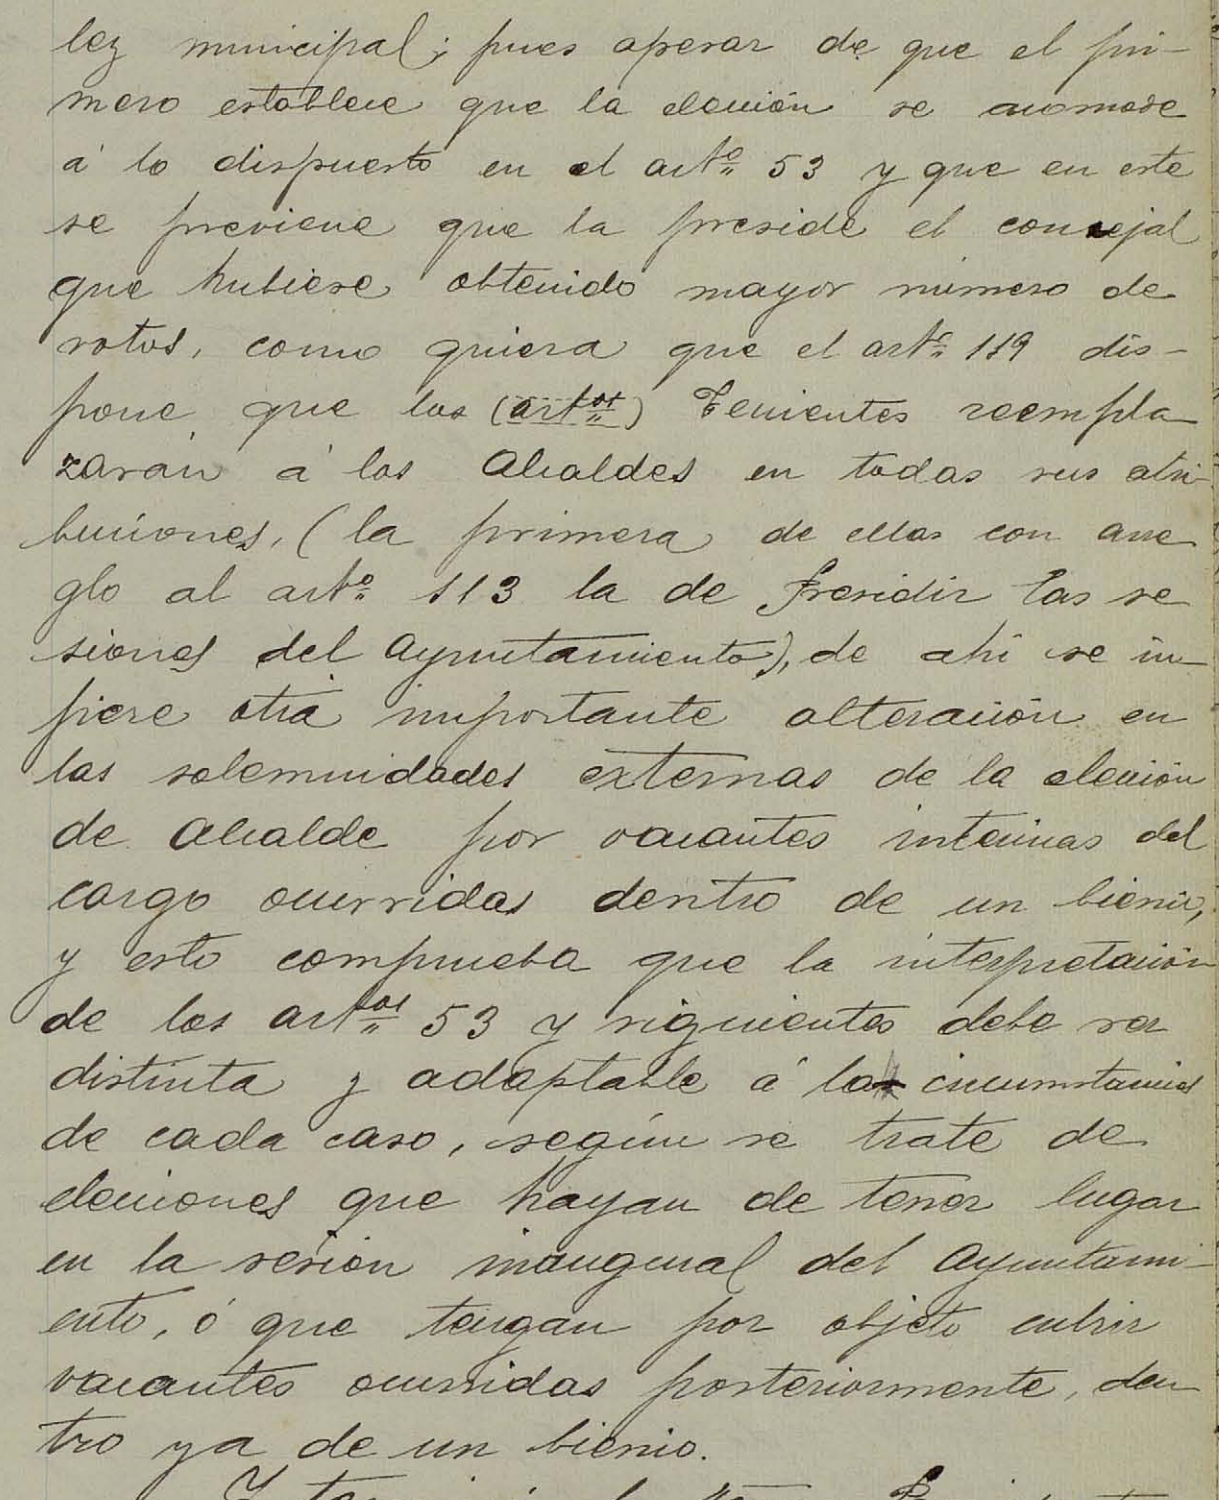 ley municipal; pues apesar de que el pri-
mero establece que la elección se acomode
á lo dispuesto en el artº 53 y que en este
se previene que la preside el concejal
que hubiese obtenido mayor número de
votos, como quiera que el artº 119 dis-
pone que los (artos) Tenientes reempla
zarán á los Alcaldes en todas sus atri-
buciones, (la primera de ellas con arre
glo al artº 113 la de Presidir las se
siones del Ayuntamiento), de ahí se in-
fiere otra importante alteración en
las solemnidades externas de la elección
de Alcalde por vacantes interinas del
cargo ocurridas dentro de un bienio,
y esto comprueba que la interpretación
de los artos 53 y siguientes debe ser
distinta y adaptable á las circunstancias
de cada caso, según se trate de
elecciones que hayan de tener lugar
en la sesión inaugural del Ayuntami-
ento, ó que tengan por objeto cubrir
vacantes ocurridas posteriormente, den
tro ya de un bienio.